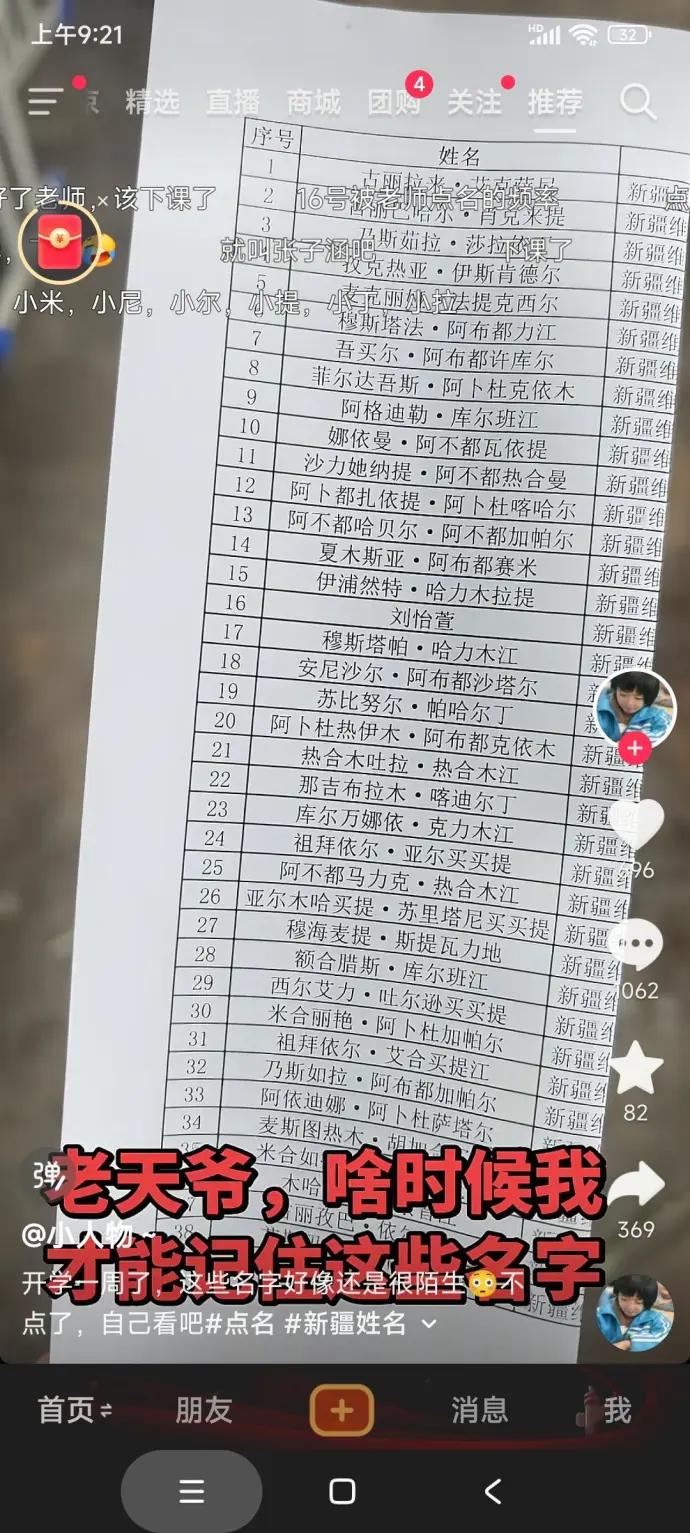 上午9:21
HD
32
精选 直播 商城 团购 4 关注 推荐
序号 姓名
该下课了
16号被老师点名的频率
就叫张子涵吧
下课了
小米，小尼，小尔，小提，小丁，小拉
1
2 新疆维
3 乃斯茹拉·莎拉依 新疆维
孜克热亚·伊斯肯德尔 新疆维
5 新疆维
穆斯塔法·阿布都力江 新疆维
7 吾买尔·阿布都许库尔 新疆维
8 菲尔达吾斯·阿卜杜克依木 新疆维
9 阿格迪勒·库尔班江 新疆维
10 娜依曼·阿不都瓦依提 新疆维
11 沙力她纳提·阿不都热合曼 新疆维
12 阿卜都扎依提·阿卜杜喀哈尔 新疆维
13 阿不都哈贝尔·阿不都加帕尔 新疆维
14 夏木斯亚·阿布都赛米 新疆维
15 伊浦然特·哈力木拉提 新疆维
16 刘怡萱 新疆维
17 穆斯塔帕·哈力木江 新疆维
18 安尼沙尔·阿布都沙塔尔
19 苏比努尔·帕哈尔丁
20 阿卜杜热伊木·阿布都克依木 新疆维
21 热合木吐拉·热合木江 新疆维
22 那吉布拉木·喀迪尔丁 新疆维
23 库尔万娜依·克力木江 新疆维
24 祖拜依尔·亚尔买买提 新疆维
25 阿不都马力克·热合木江 新疆维
26 亚尔木哈买提·苏里塔尼买买提 新疆维
27 穆海麦提·斯提瓦力地 新疆维
28 额合腊斯·库尔班江 新疆维
29 西尔艾力·吐尔逊买买提 新疆维
30 米合丽艳·阿卜杜加帕尔 新疆维
31 祖拜依尔·艾合买提江 新疆维
32 乃斯如拉·阿布都加帕尔 新疆维
33 阿依迪娜·阿卜杜萨塔尔 新疆维
34 麦斯图热木·胡加
米合如
木哈
38
1062
82
369
弹
老天爷，啥时候我
才能记住这些名字
@小人物
开学一周了，这些名字好像还是很陌生😳不
点了，自己看吧#点名 #新疆姓名
首页 朋友 消息 我